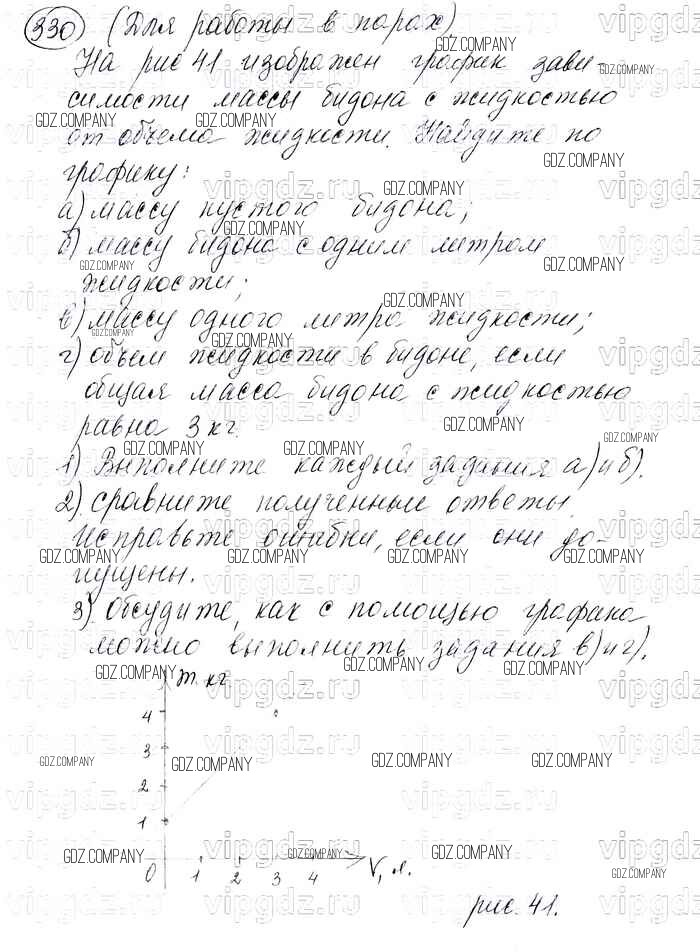 330 (Для работы в парах).
На рис 41 изображен график зави-
симости массы бидона с жидкостью
от объема жидкости. Найдите по
графику:
а) массу пустого бидона;
б) массу бидона с одним литром
жидкости;
в) массу одного литра жидкости;
г) объем жидкости в бидоне, если
общая масса бидона с жидкостью
равна 3 кг.
1) Выполните каждый задания а) и б).
2) сравните полученные ответы.
Исправьте ошибки, если они до-
пущены.
3) Обсудите, как с помощью графика
можно выполнить задания в) и г).
m. кг
4
3
2
1
0 1 2 3 4 V, л.
рис. 41.
GDZ.COMPANY
vipgdz.ru